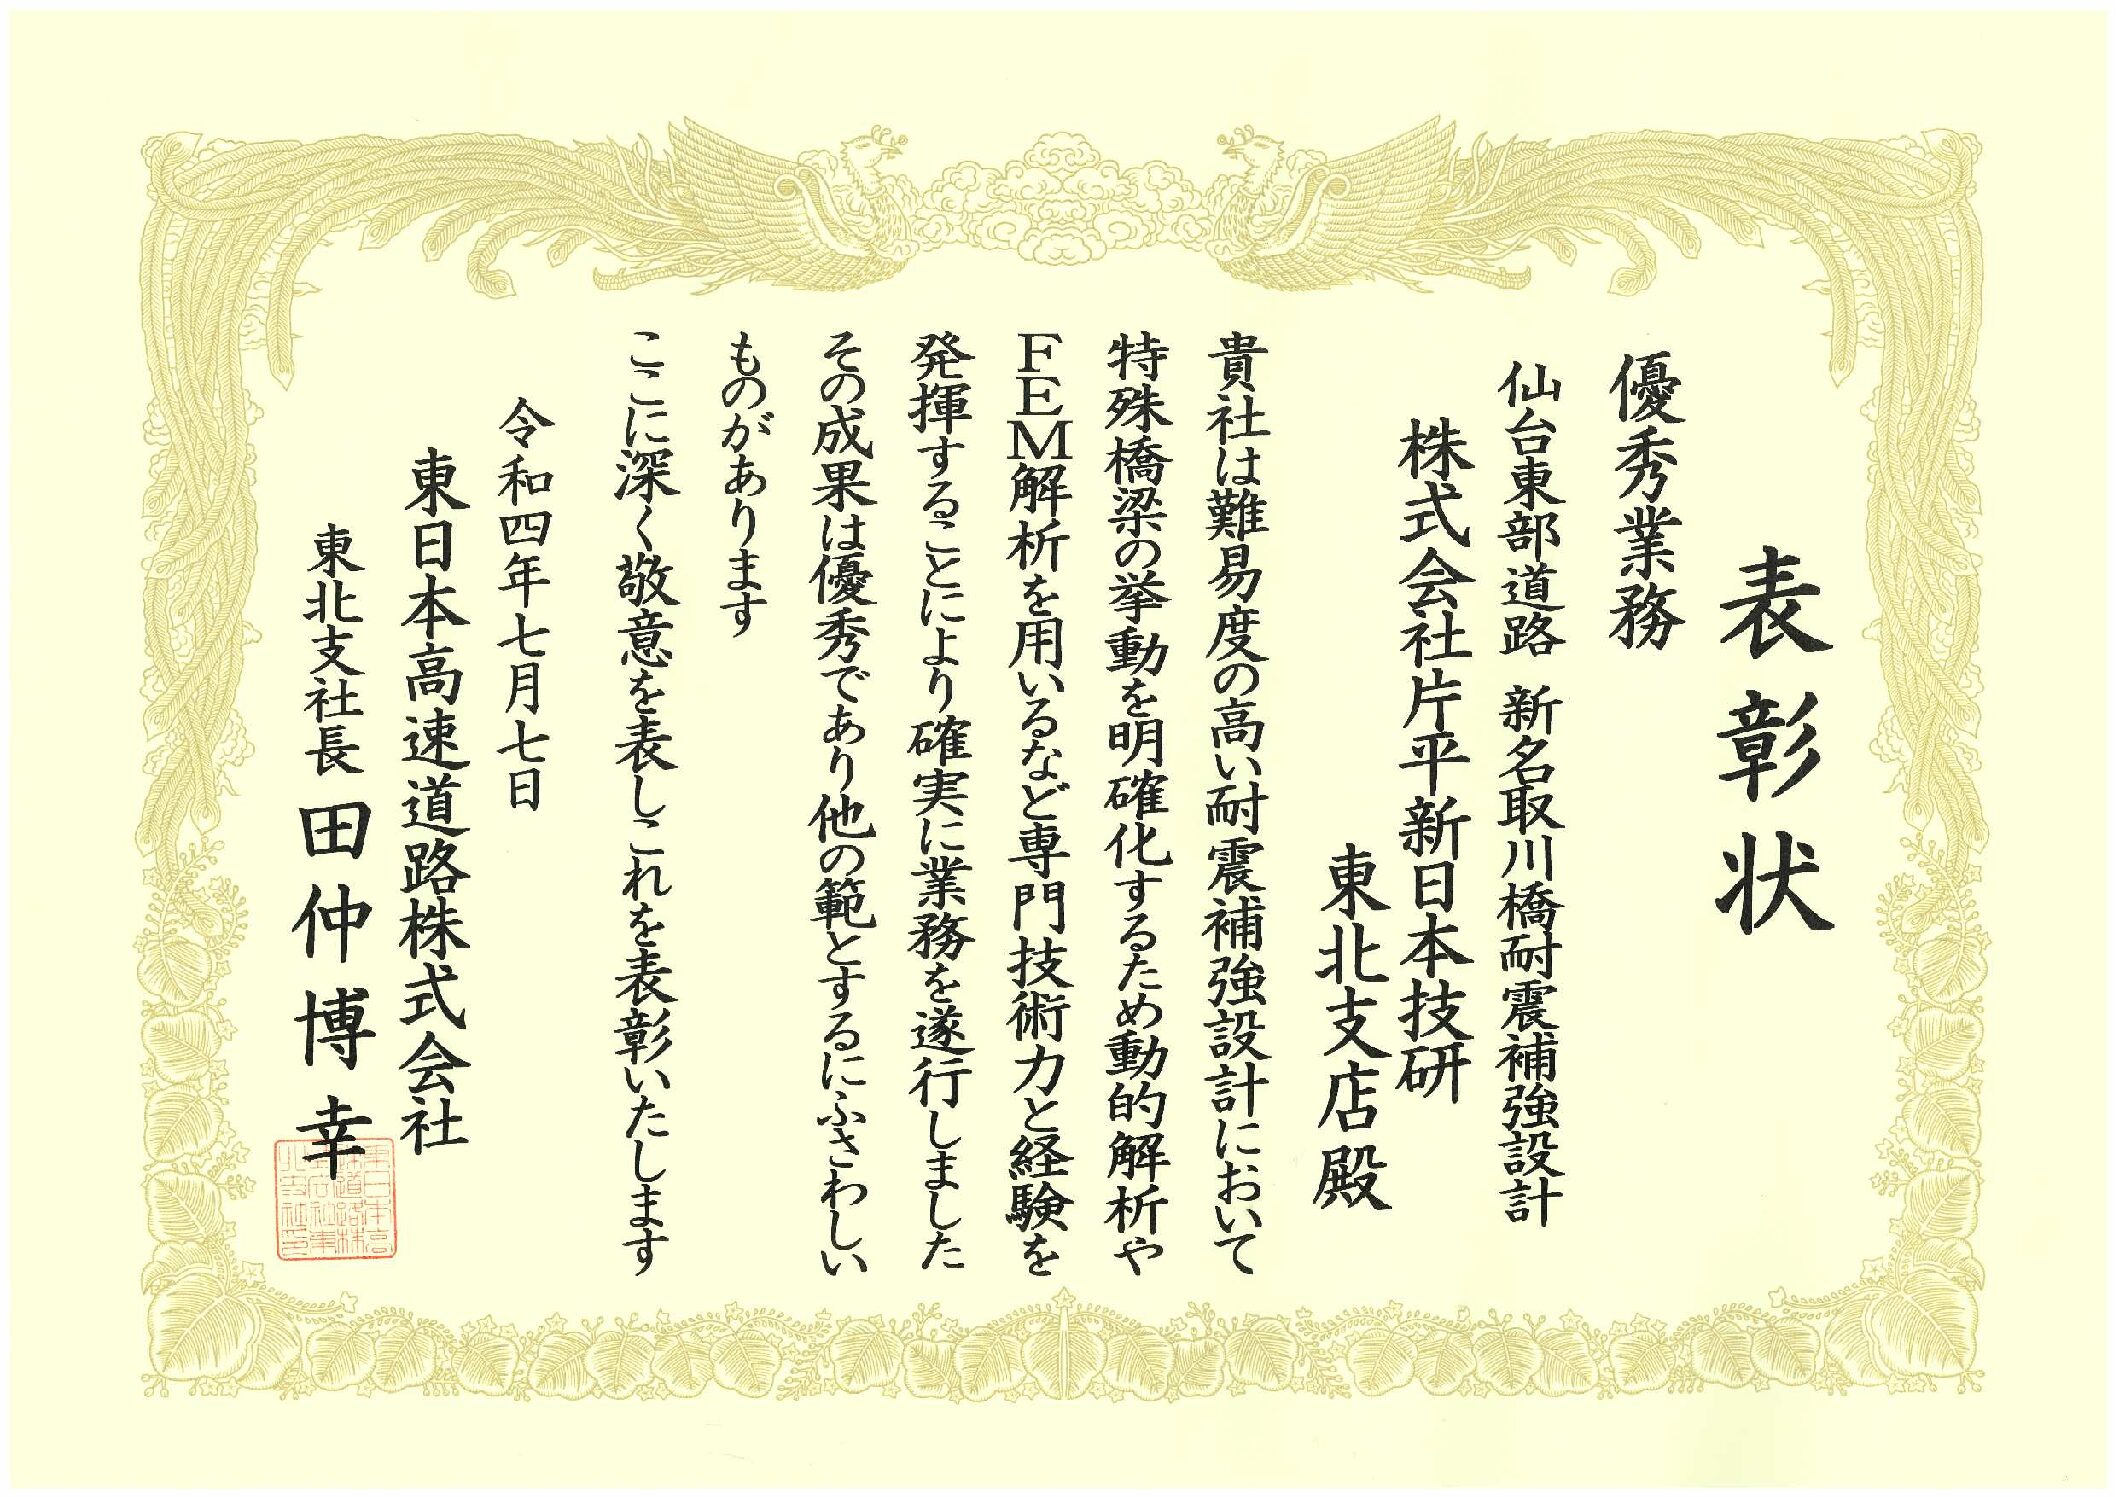 表彰状
優秀業務
仙台東部道路 新名取川橋耐震補強設計
株式会社片平新日本技研
東北支店殿
貴社は難易度の高い耐震補強設計において
特殊橋梁の挙動を明確化するため動的解析や
FEM解析を用いるなど専門技術力と経験を
発揮することにより確実に業務を遂行しました
その成果は優秀であり他の範とするにふさわしい
ものがあります
ここに深く敬意を表しこれを表彰いたします
令和四年七月七日
東日本高速道路株式会社
東北支社長 田仲博幸